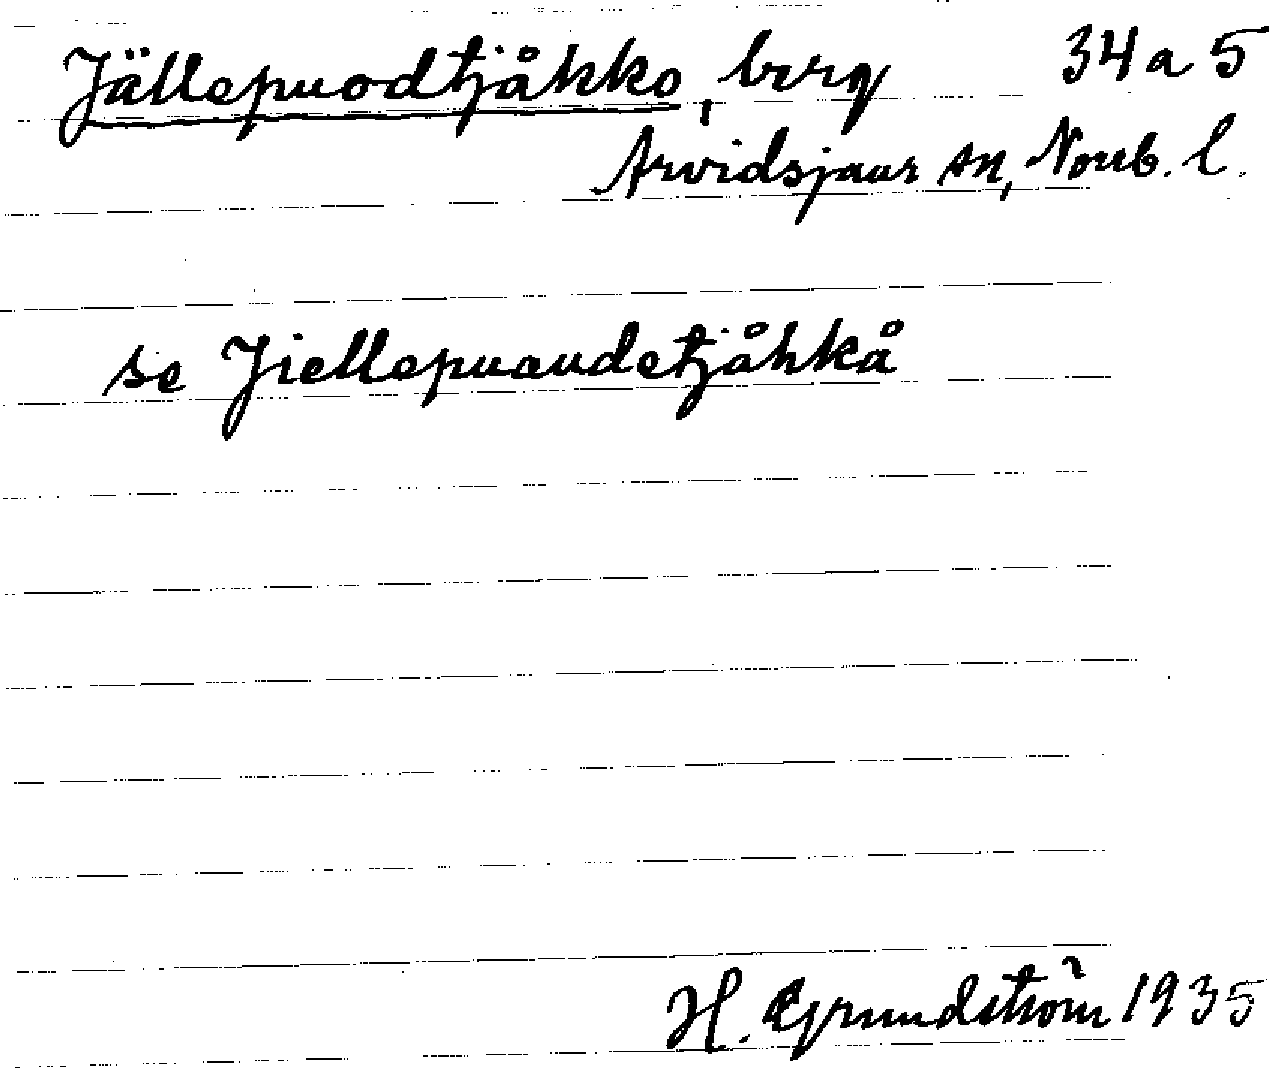 Jällepuodtjåkko, berg 34 a 5
Arvidsjaur sn, Norrb. l.
se Jiellepuaudetjåhkå
H. Grundström 1935